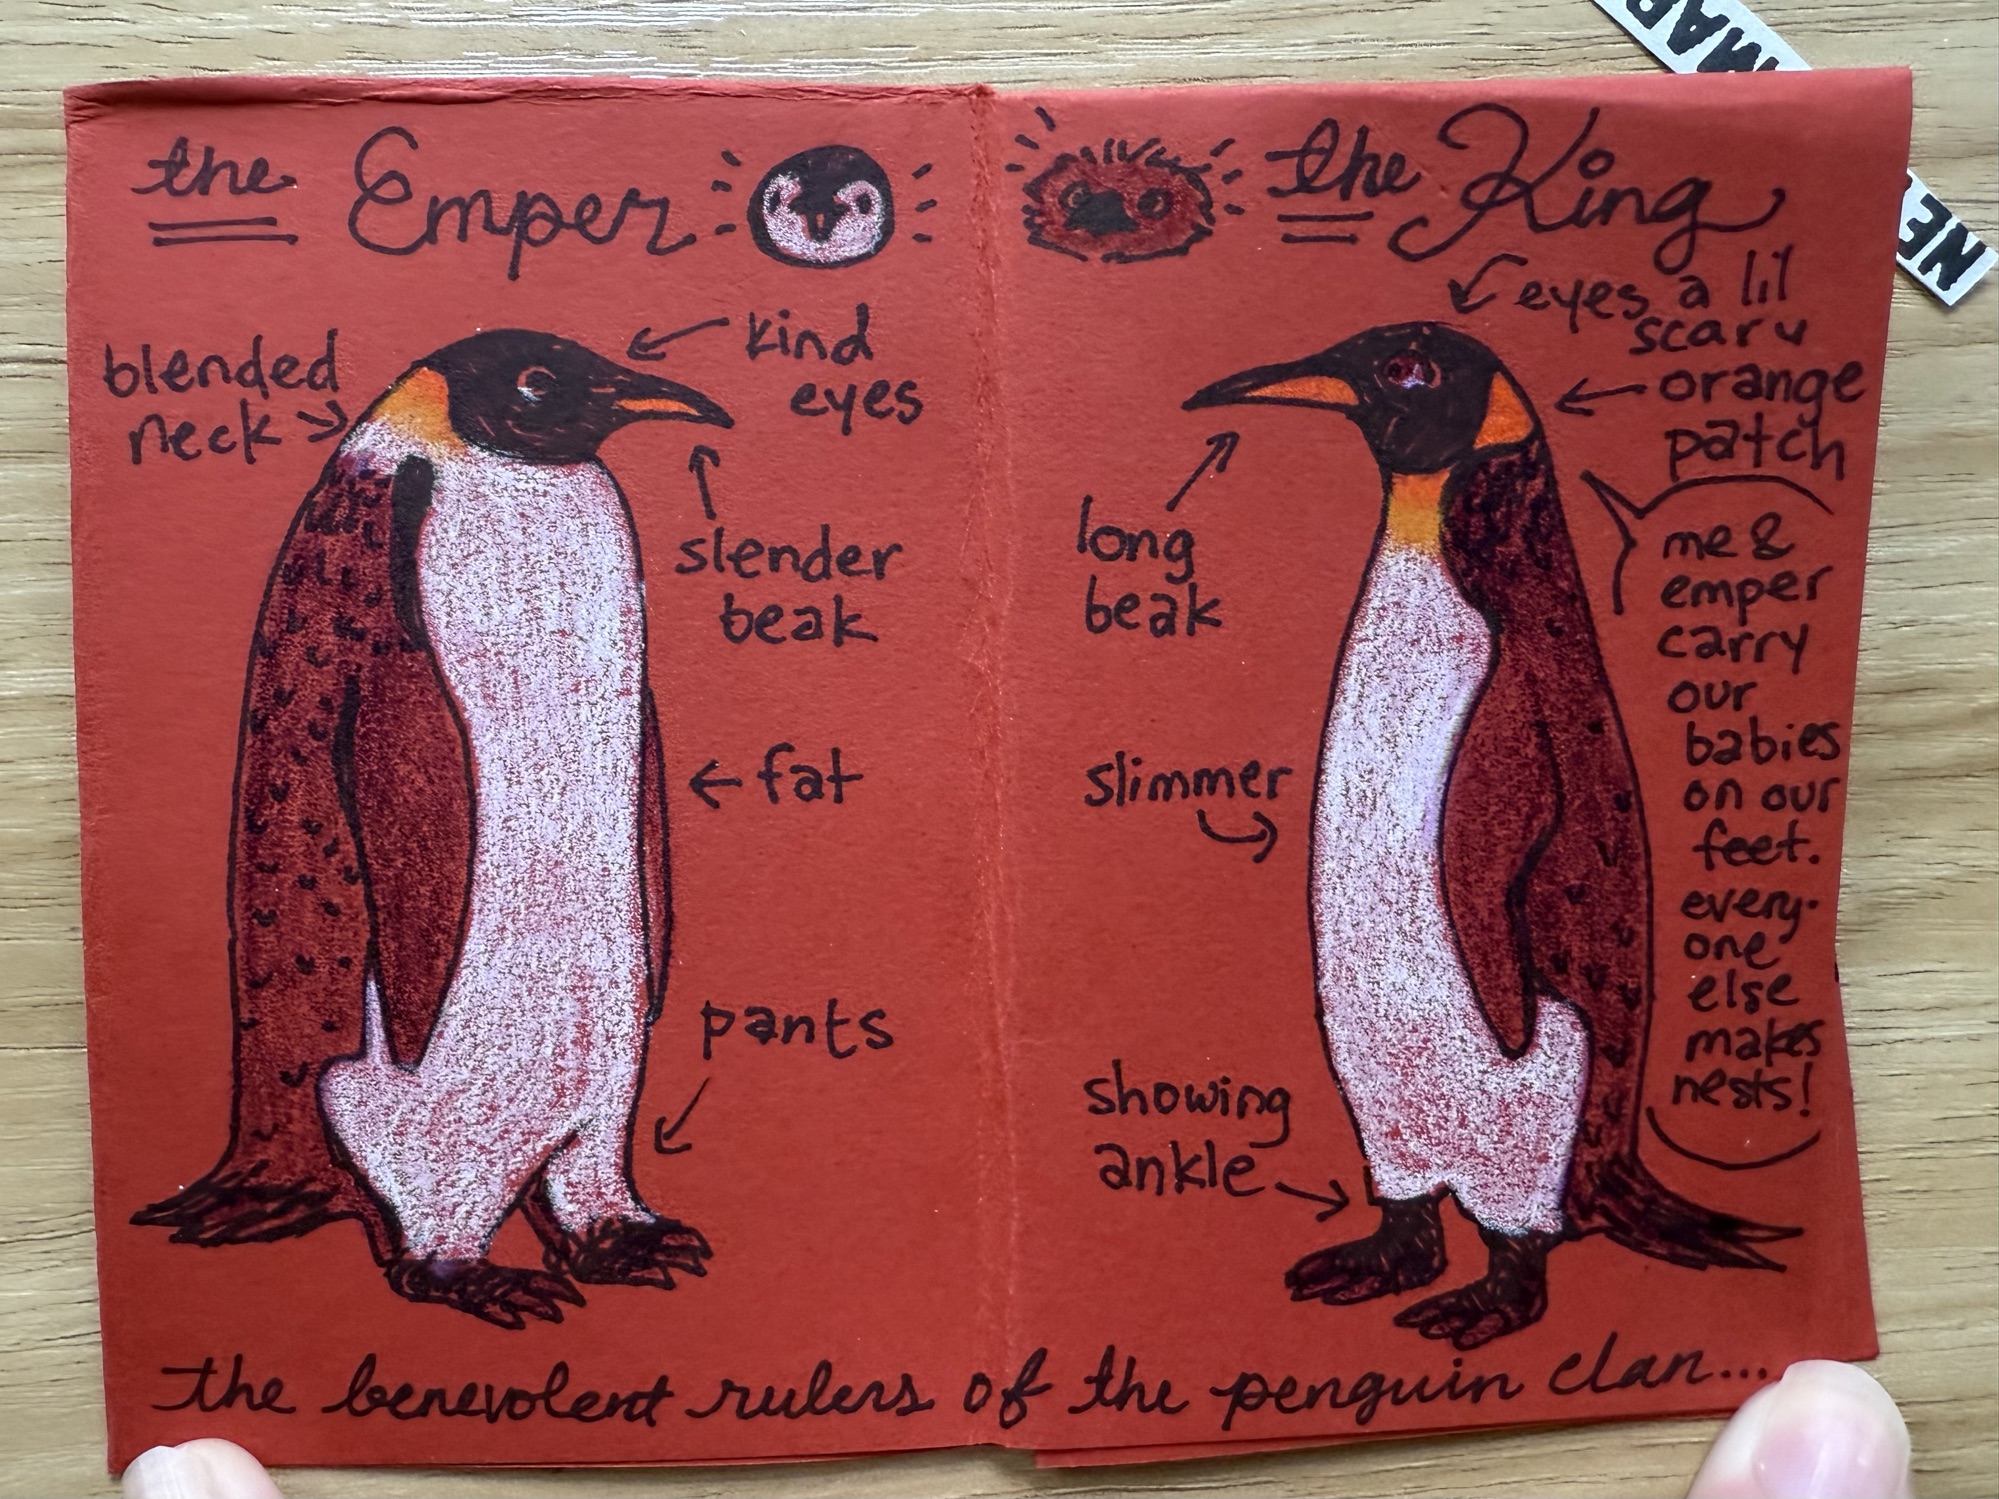 the Emper
the King
blended
neck
kind
eyes
slender
beak
fat
pants
eyes a lil
scary
orange
patch
long
beak
slimmer
showing
ankle
me &
emper
carry
our
babies
on our
feet.
every-
one
else
makes
nests!
the benevolent rulers of the penguin clan....
MAR
NE